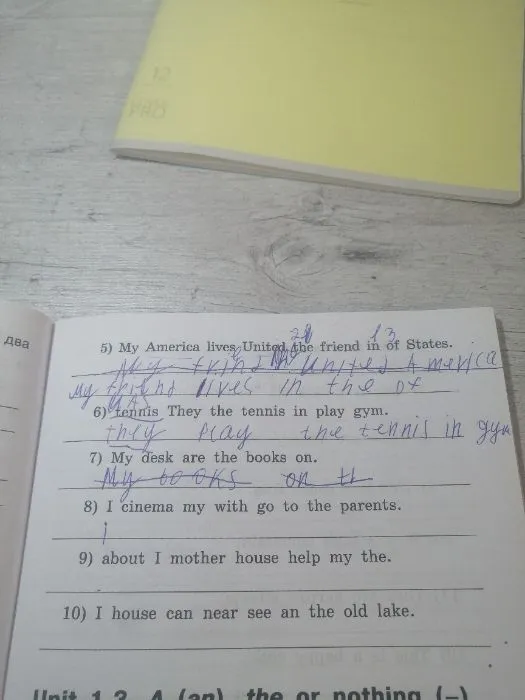 два
5) My America lives United the friend in of States.
My frind in United America
My friend lives in the of
6) tennis They the tennis in play gym.
they play the tennis in gym
7) My desk are the books on.
My books on th
8) I cinema my with go to the parents.
i
9) about I mother house help my the.
10) I house can near see an the old lake.
Unit 1.3. A (an), the or nothing (–)